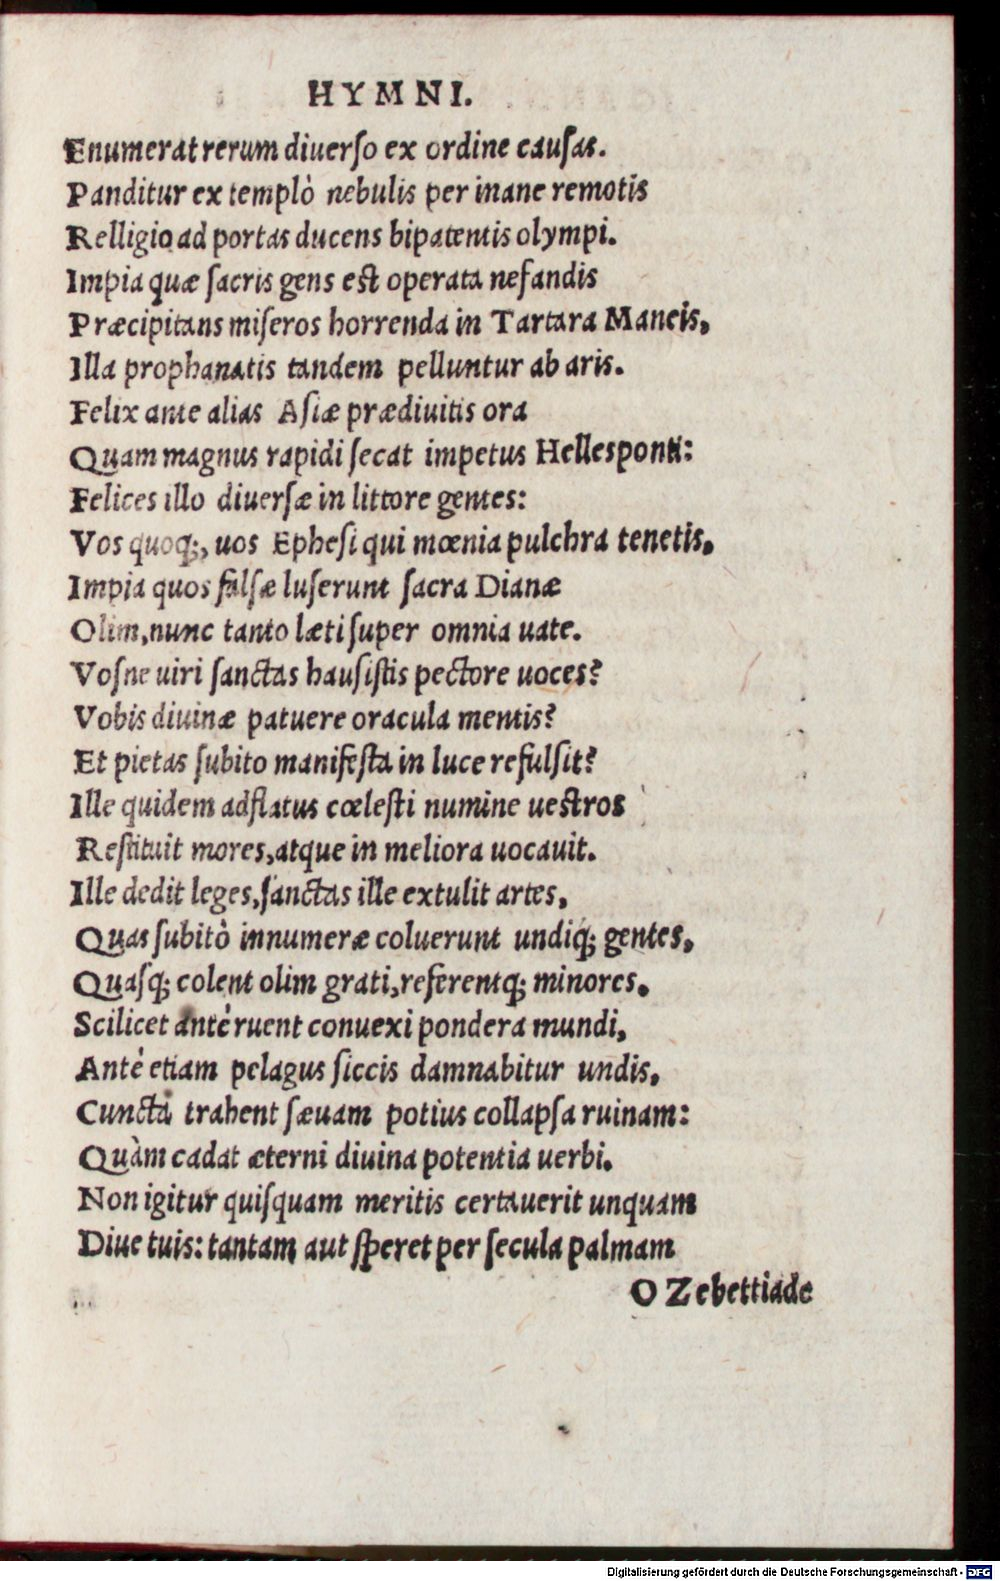 HYMNI.
Enumerat rerum diuerso ex ordine causas.
Panditur ex templò nebulis per inane remotis
Relligio ad portas ducens bipatentis olympi.
Impia quæ sacris gens est operata nefandis
Præcipitans miseros horrenda in Tartara Maneis,
Illa prophanatis tandem pelluntur ab aris.
Felix ante alias Asiæ prædiuitis ora
Quam magnus rapidi secat impetus Hellesponti:
Felices illo diuersæ in littore gentes:
Vos quoq;, uos Ephesi qui mœnia pulchra tenetis,
Impia quos falsæ luserunt sacra Dianæ
Olim, nunc tanto læti super omnia uate.
Vosne uiri sanctas hausistis pectore uoces?
Vobis diuinæ patuere oracula mentis?
Et pietas subito manifesta in luce refulsit?
Ille quidem adflatus cœlesti numine uestros
Restituit mores, atque in meliora uocauit.
Ille dedit leges, sanctas ille extulit artes,
Quas subitò innumeræ coluerunt undiq; gentes,
Quasq; colent olim grati, referentq; minores.
Scilicet antè ruent conuexi pondera mundi,
Antè etiam pelagus siccis damnabitur undis,
Cuncta trahent sæuam potius collapsa ruinam:
Quàm cadat æterni diuina potentia uerbi.
Non igitur quisquam meritis certauerit unquam
Diue tuis: tantam aut speret per secula palmam
O Zebettiade
Digitalisierung gefördert durch die Deutsche Forschungsgemeinschaft - DFG